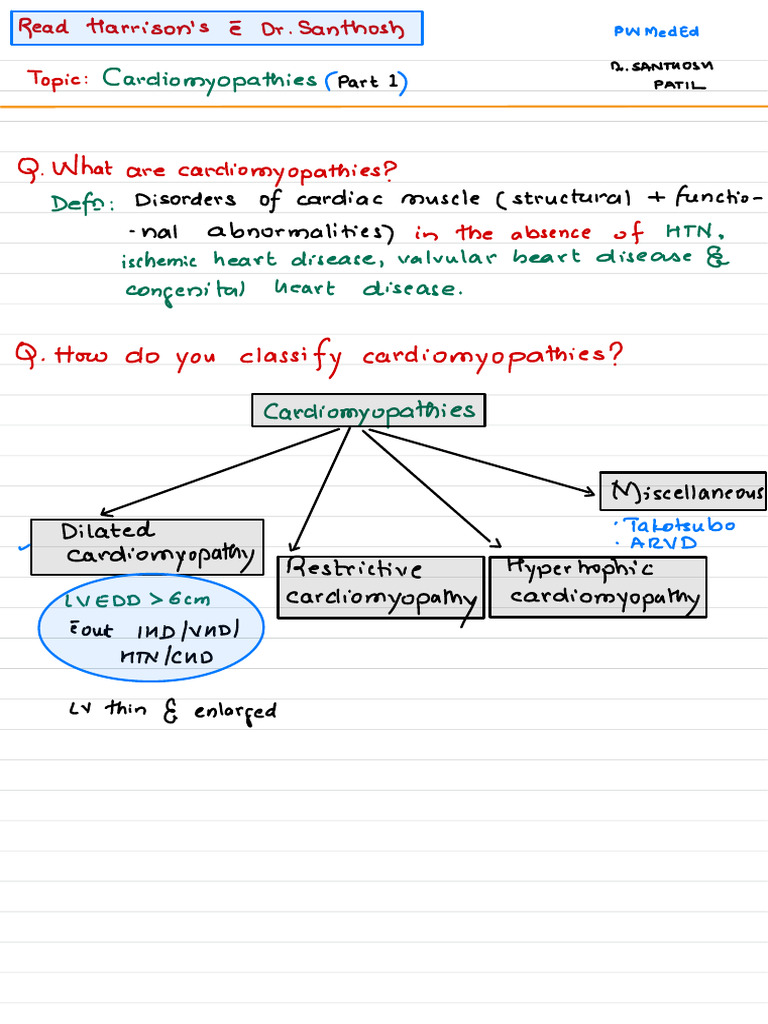 Read Harrison's c̄ Dr. Santhosh
PWMedEd
Topic: Cardiomyopathies (Part 1)
Dr. SANTHOSH
PATIL
Q. What are cardiomyopathies?
Defn: Disorders of cardiac muscle (structural + functio-
-nal abnormalities) in the absence of HTN,
ischemic heart disease, valvular heart disease &
congenital heart disease.
Q. How do you classify cardiomyopathies?
Cardiomyopathies
Miscellaneous
· Takotsubo
· ARVD
Dilated
cardiomyopathy
Restrictive
cardiomyopathy
Hypertrophic
cardiomyopathy
LVEDD > 6cm
c̄out IHD/VHD/
HTN/CHD
LV thin & enlarged